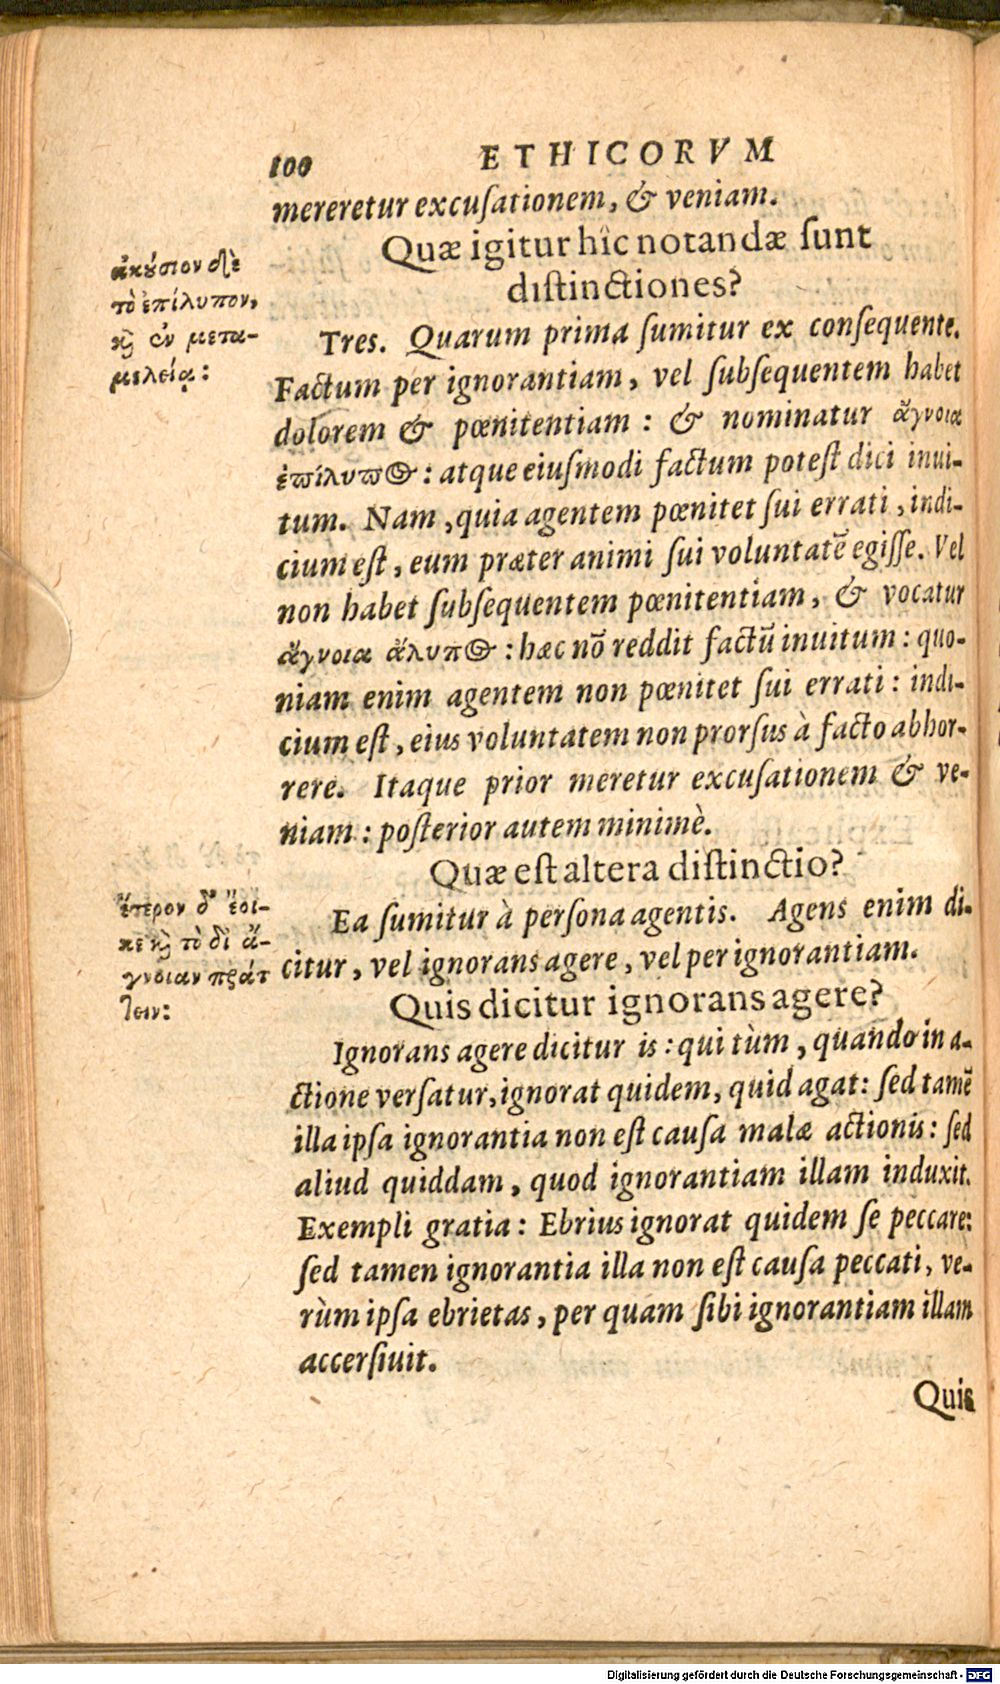 100 ETHICORVM
mereretur excuſationem, & veniam.
Quæ igitur hîc notandæ ſunt
diſtinctiones?
ἀκούσιον δὲ
τὸ ἐπίλυπον,
καὶ ἐν μετα-
μελείᾳ:
Tres. Quarum prima ſumitur ex conſequente.
Factum per ignorantiam, vel ſubſequentem habet
dolorem & pœnitentiam : & nominatur ἄγνοια
ἐπίλυπος : atque eiuſmodi factum poteſt dici inui-
tum. Nam, quia agentem pœnitet ſui errati, indi-
cium eſt, eum præter animi ſui voluntatē egiſſe. Vel
non habet ſubſequentem pœnitentiam, & vocatur
ἄγνοια ἄλυπος : hæc nō reddit factū inuitum : quo-
niam enim agentem non pœnitet ſui errati : indi-
cium eſt, eius voluntatem non prorſus à facto abhor-
rere. Itaque prior meretur excuſationem & ve-
niam : poſterior autem minimè.
Quæ eſt altera diſtinctio?
ἕτερον δ' ἔοι-
κε καὶ τὸ δι' ἄ-
γνοιαν πράτ
τειν:
Ea ſumitur à perſona agentis. Agens enim di-
citur, vel ignorans agere, vel per ignorantiam.
Quis dicitur ignorans agere?
Ignorans agere dicitur is : qui tùm, quando in a-
ctione verſatur, ignorat quidem, quid agat : ſed tamē
illa ipſa ignorantia non eſt cauſa malæ actionis : ſed
aliud quiddam, quod ignorantiam illam induxit.
Exempli gratia : Ebrius ignorat quidem ſe peccare:
ſed tamen ignorantia illa non eſt cauſa peccati, ve-
rùm ipſa ebrietas, per quam ſibi ignorantiam illam
accerſiuit.
Quis
Digitalisierung gefördert durch die Deutsche Forschungsgemeinschaft - DFG